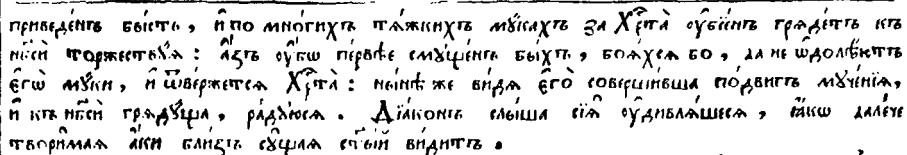 приведе́нъ бы́сть, и҆ по мно́гихъ тѧ́жкихъ мꙋ́кахъ за Хрⷭ҇та̀ ᲂу҆бїе́нъ грѧде́тъ къ
нб҃си́ торжествꙋ́ѧ: а҆́зъ ᲂу҆́бѡ пе́рвѣе смꙋще́нъ бы́хъ, боѧ́хсѧ бо, да не ѡ҆долѣ́ютъ
є҆го̀ мꙋ́ки, и҆ ѿве́ржетсѧ Хрⷭ҇та̀: ны́нѣ же ви́дѧ є҆го̀ соверши́вша по́двигъ мꙋче́нїѧ,
и҆ къ нб҃си́ грѧдꙋ́ща, ра́дꙋюсѧ. Дїа́конъ слы́ша сїѧ̑ ᲂу҆дивлѧ́шесѧ, ꙗ҆́кѡ дале́че
твори́маѧ а҆́ки бли́зъ сꙋ̑щаѧ ст҃ы́й ви́дитъ.